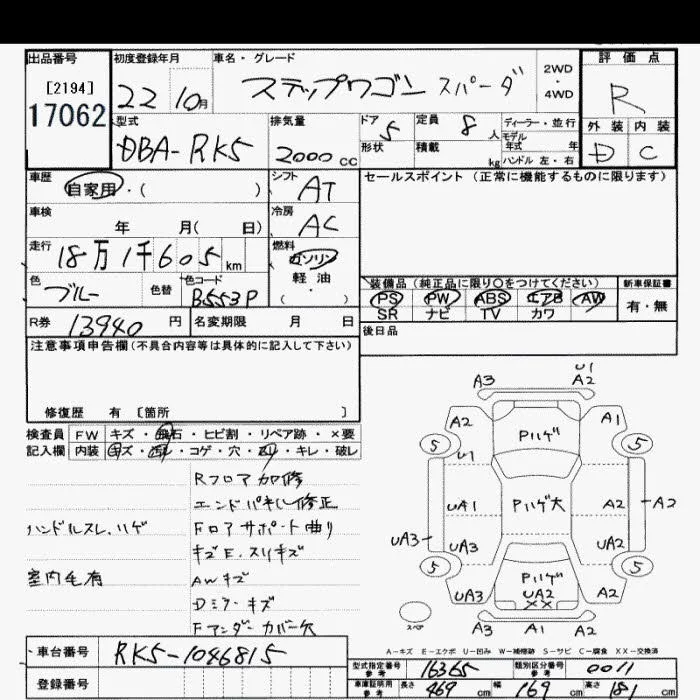 出品番号 初度登録年月 車名・グレード 評価点
[2194]
17062
22 10月 ステップワゴン スパーダ 2WD・4WD R
型式 排気量 ドア 5 定員 8人 ディーラー・並行 外装 内装
DBA-RK5 2000cc 形状 積載 kg モデル年式 年 D C
ハンドル 左・右
車歴 自家用・( ) シフト AT セールスポイント(正常に機能するものに限ります)
車検 年 月( 日) 冷房 AC
走行 18万1千605km 燃料 ガソリン 軽油・( )
色 ブルー 色替 色コード B553P
装備品(純正品に限り○をつけてください) 新車保証書
PS PW ABS エアB AW 有・無
SR ナビ TV カワ
R券 13940円 名変期限 月 日 後日品
注意事項申告欄(不具合内容等は具体的に記入して下さい)
修復歴 有 [箇所 ]
検査員 FW キズ・飛石・ヒビ割・リペア跡・×要
記入欄 内装 キズ・汚レ・コゲ・穴・スリ・キレ・破レ
Rフロア加修
エンドパネル修正
ハンドルスレ、ハゲ Fロアサポート曲り
キズE、スリキズ
室内毛有 AWキズ
Dミラーキズ
Fアンダーカバー欠
A3 U1 A2
A2 Pハゲ A1
5 5
U1
UA1 Pハゲ大 A2 A2
UA3 UA3 UA2
5 5
Pハゲ
UA3 UA2 A2
XX
スペア A3 A1 A2
A-キズ E-エクボ U-凹み W-補修跡 S-サビ C-腐食 XX-交換済
車台番号 RK5-1046815
登録番号
型式指定番号 参考 16365 類別区分番号 参考 0011
車庫証明用 参考 長さ 469cm 幅 169cm 高さ 181cm